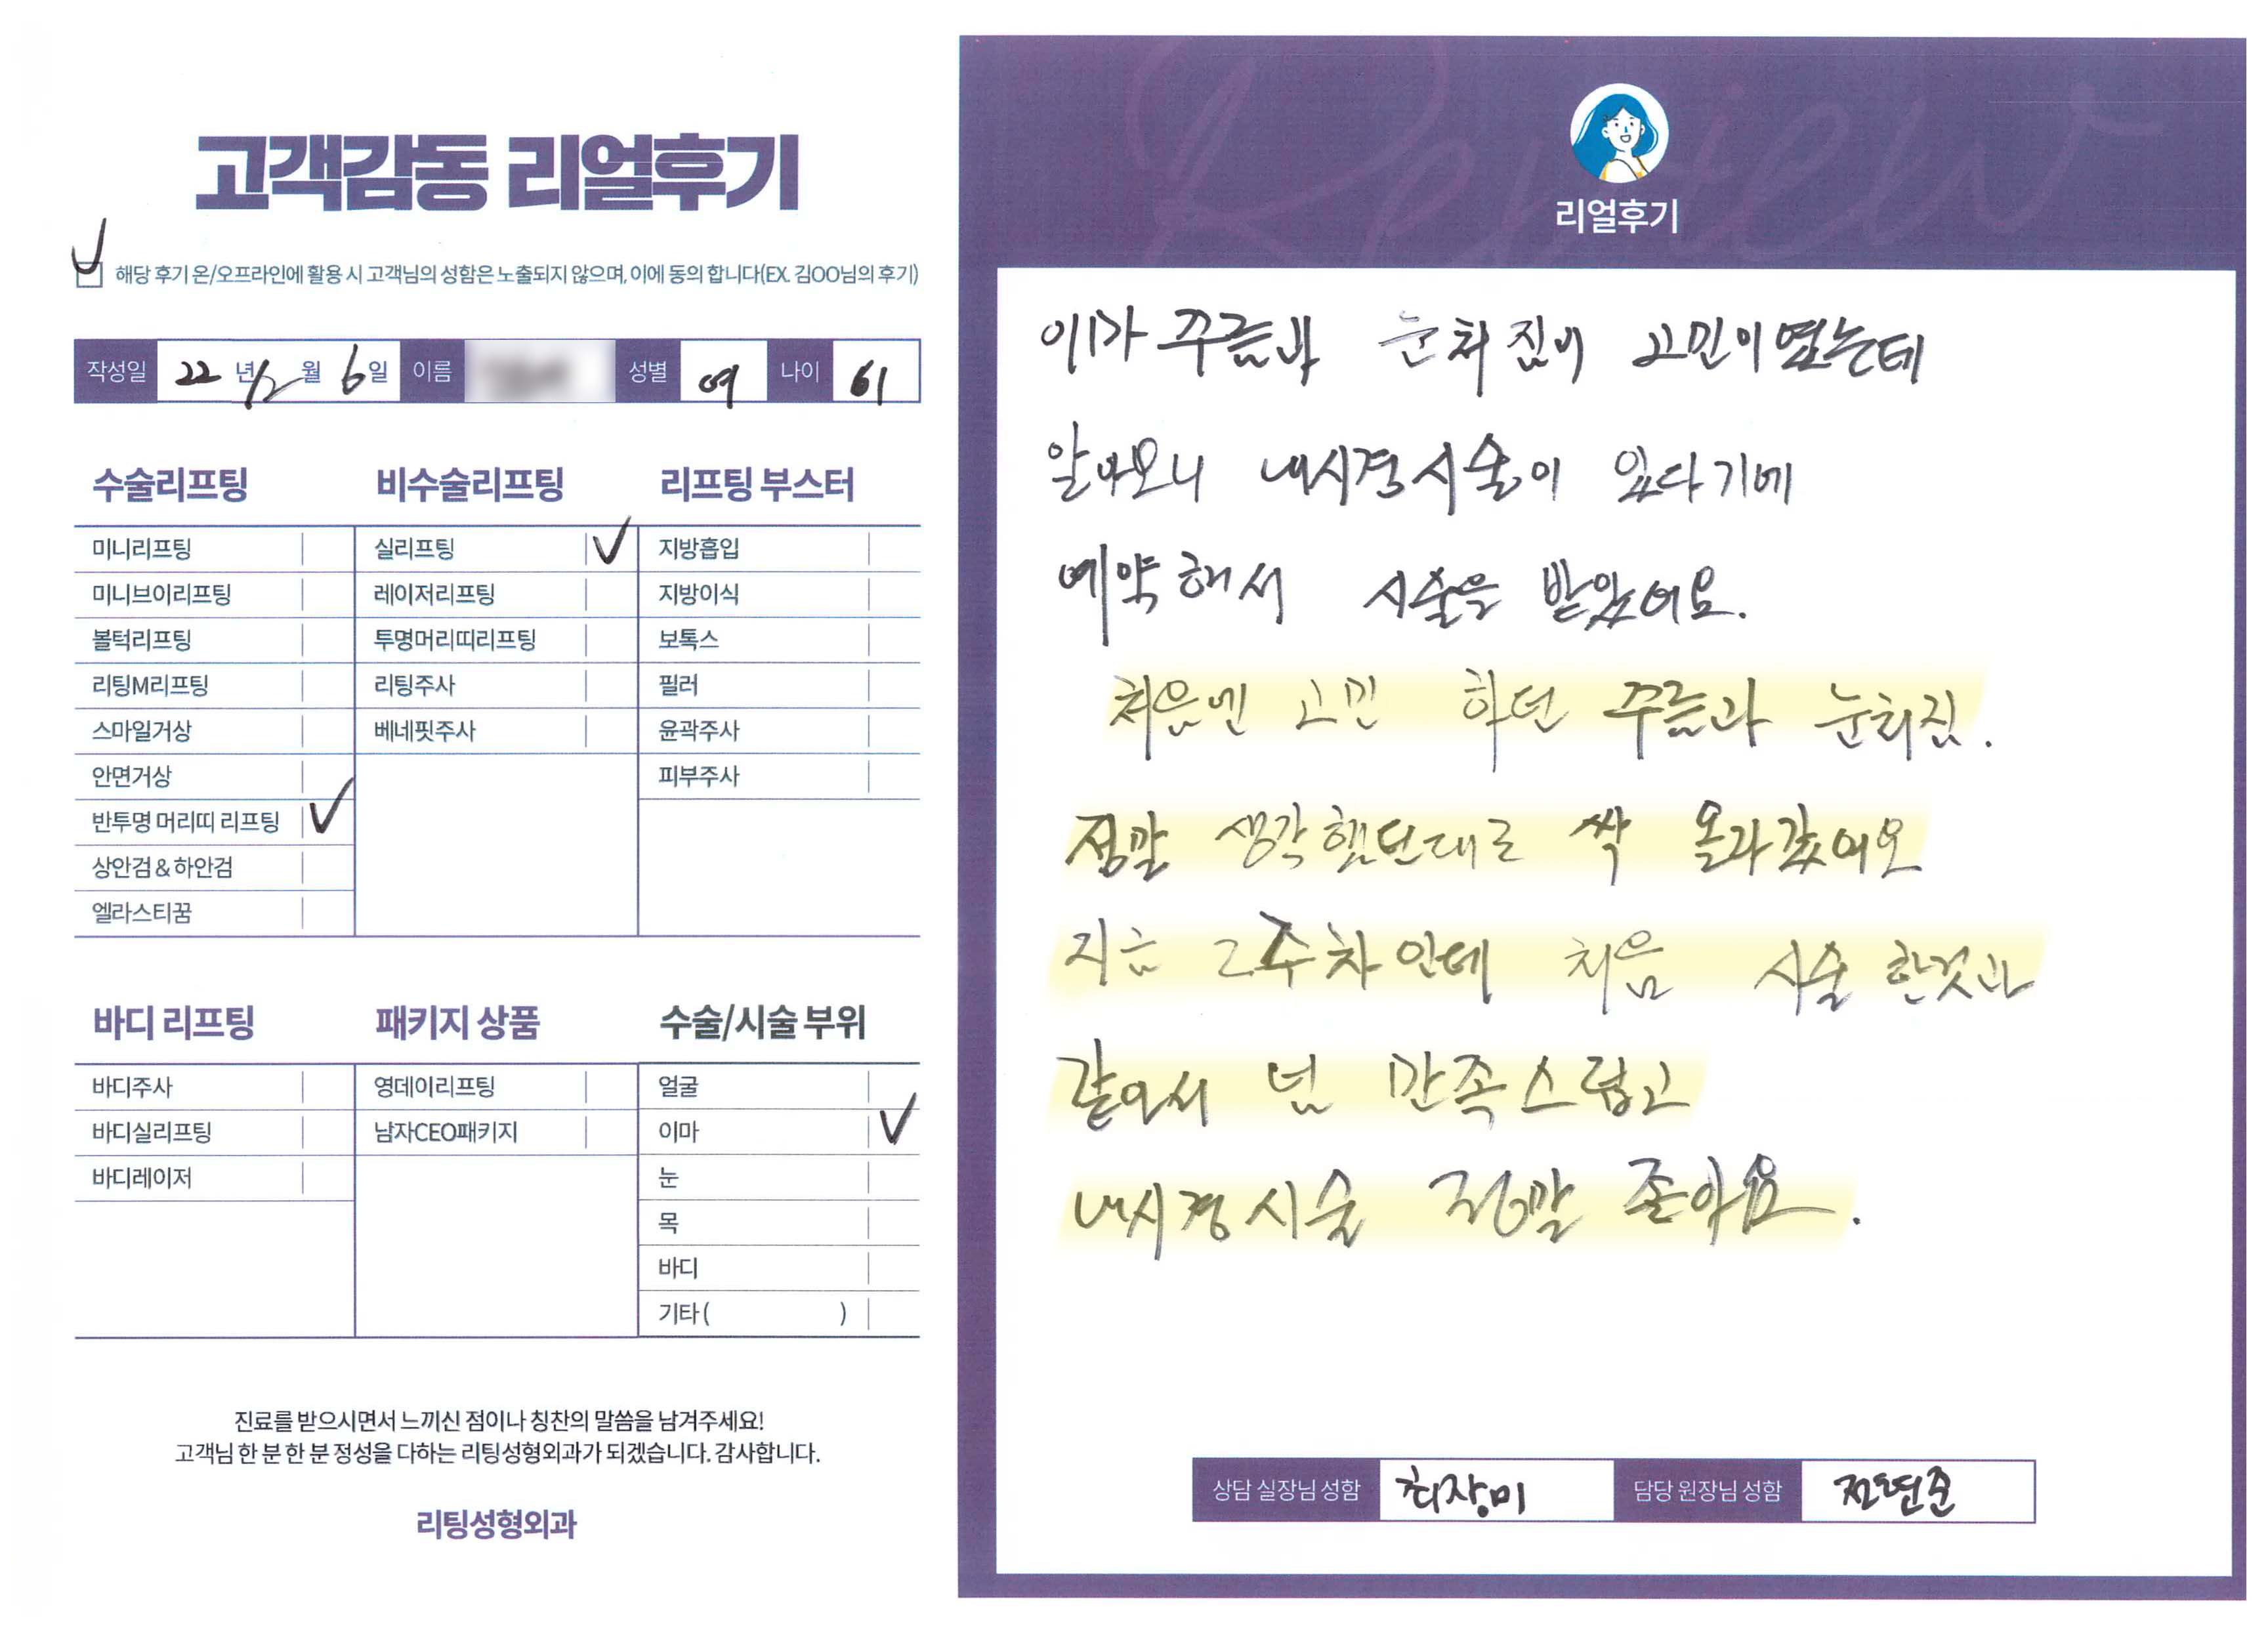 고객감동 리얼후기
해당 후기 온/오프라인에 활용 시 고객님의 성함은 노출되지 않으며, 이에 동의 합니다(EX. 김OO님의 후기)
작성일 22 년 12 월 6 일 이름 성별 여 나이 61
수술리프팅
미니리프팅
미니브이리프팅
볼턱리프팅
리팅M리프팅
스마일거상
안면거상
반투명 머리띠 리프팅
상안검 & 하안검
엘라스티꿈
비수술리프팅
실리프팅
레이저리프팅
투명머리띠리프팅
리팅주사
베네핏주사
리프팅 부스터
지방흡입
지방이식
보톡스
필러
윤곽주사
피부주사
바디 리프팅
바디주사
바디실리프팅
바디레이저
패키지 상품
영데이리프팅
남자CEO패키지
수술/시술 부위
얼굴
이마
눈
목
바디
기타 ( )
진료를 받으시면서 느끼신 점이나 칭찬의 말씀을 남겨주세요!
고객님 한 분 한 분 정성을 다하는 리팅성형외과가 되겠습니다. 감사합니다.
리팅성형외과
Review
리얼후기
이마 주름과 눈처짐이 고민이였는데
알아보니 내시경시술이 있다기에
예약해서 시술을 받았어요.
처음엔 고민 하던 주름과 눈처짐.
정말 생각했던대로 싹 올라갔어요
지금 2주차인데 처음 시술 한것과
같아서 넘 만족스럽고
내시경시술 정말 좋아요.
상담 실장님 성함 최장미 담당 원장님 성함